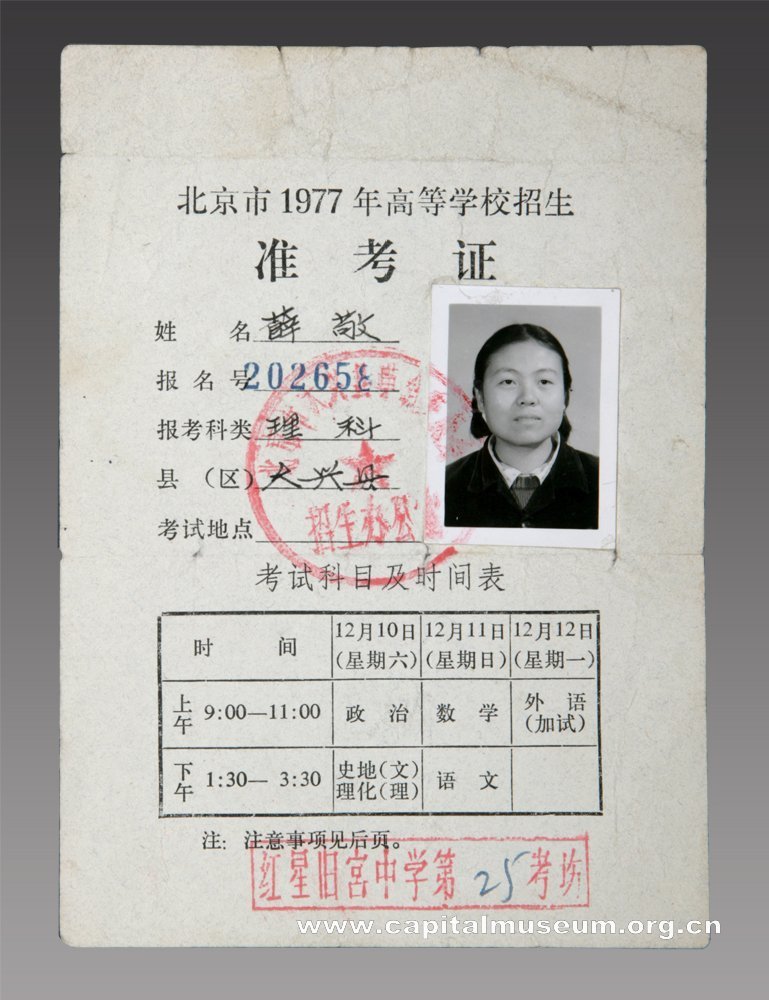 北京市1977年高等学校招生
准考证
姓名 薛敬
报名号 202658
报考科类 理科
县（区） 大兴县
考试地点
招生办公室
考试科目及时间表
时间 12月10日（星期六） 12月11日（星期日） 12月12日（星期一）
上午 9:00—11:00 政治 数学 外语（加试）
下午 1:30—3:30 史地（文）理化（理） 语文
注：注意事项见后页。
红星旧宫中学第25考场
www.capitalmuseum.org.cn